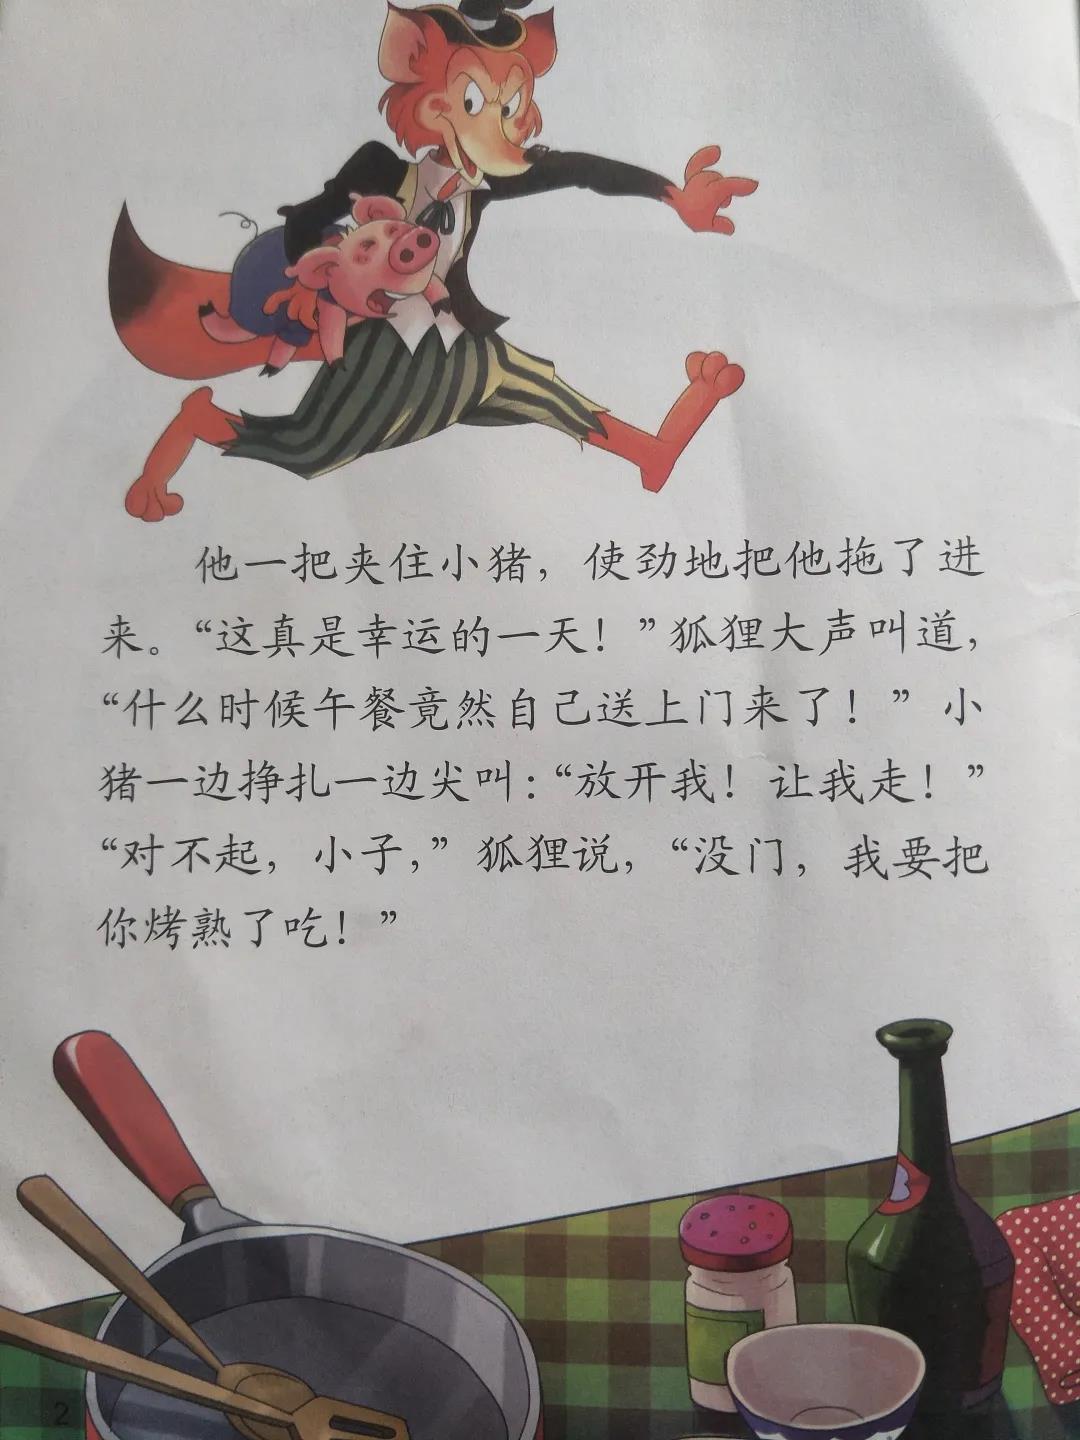 他一把夹住小猪，使劲地把他拖了进
来。“这真是幸运的一天！”狐狸大声叫道，
“什么时候午餐竟然自己送上门来了！”小
猪一边挣扎一边尖叫：“放开我！让我走！”
“对不起，小子，”狐狸说，“没门，我要把
你烤熟了吃！”
2